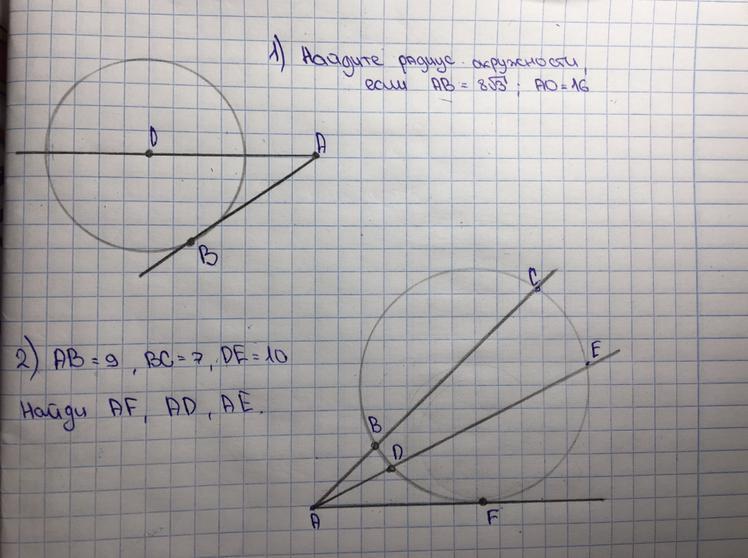 1) Найдите радиус окружности,
если AB = 8√3 ; AO = 16
O
A
B
2) AB = 9 , BC = 7 , DE = 10
Найди AF, AD, AE.
C
E
B
D
A
F